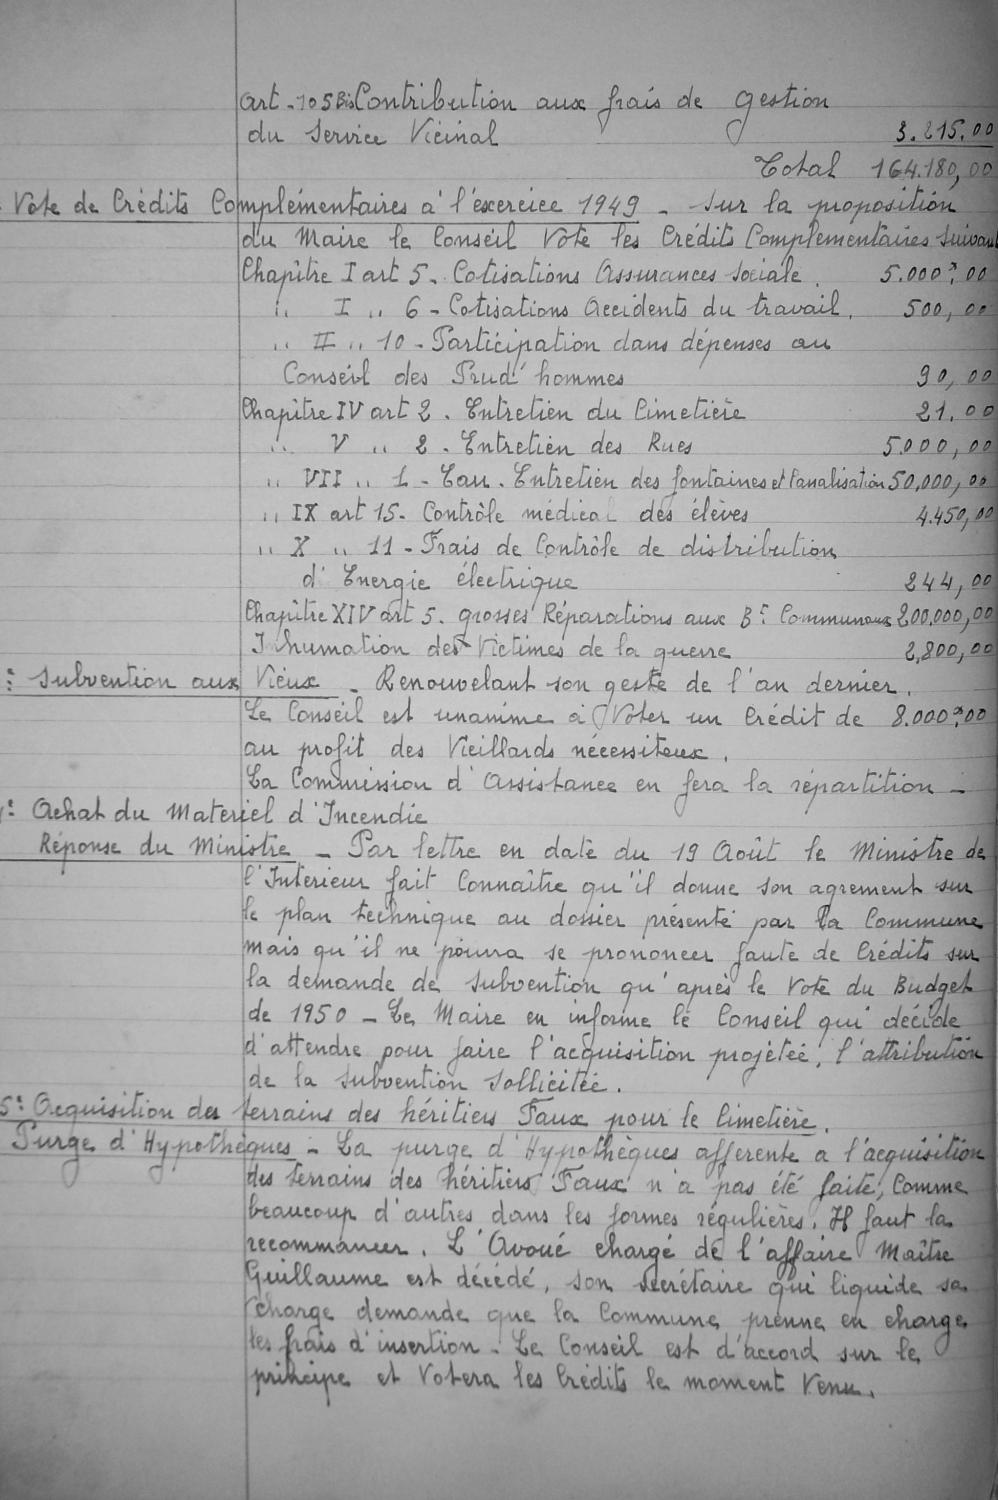 Art. 105 Bis Contribution aux frais de gestion
du Service Vicinal 3.215.00
Total 164.180,00
Vote de Crédits Complémentaires à l'éxercice 1949 - Sur la proposition
du Maire le Conseil Vote les Crédits Complémentaires suivant
Chapitre I art 5. Cotisations Assurances Sociale. 5.000,00
" I " 6 - Cotisations Accidents du travail. 500,00
" II " 10 - Participation dans dépenses au
Conseil des Prud'hommes 90,00
Chapitre IV art 2. Entretien du Cimetière 21.00
" V " 2. Entretien des Rues 5.000,00
" VII " 1 - Eau. Entretien des fontaines et Canalisation 50,000,00
" IX art 15. Contrôle médical des élèves 4.450,00
" X " 11 - Frais de Contrôle de distribution
d'Energie électrique 244,00
Chapître XIV art 5. grosses Réparations aux Bts Communaux 200.000,00
Inhumation des Victimes de la guerre 2,800,00
Subvention aux Vieux - Renouvelant son geste de l'an dernier.
Le Conseil est unanime à Voter un Crédit de 8.000,00
au profit des Vieillards nécessiteux.
La Commission d'Assistance en fera la répartition -
Achat du Materiel d'Incendie
Réponse du Ministre - Par lettre en date du 19 Août le Ministre de
l'Interieur fait Connaître qu'il donne son agrement sur
le plan technique au dossier présenté par la Commune
mais qu'il ne poura se prononcer faute de Crédits sur
la demande de subvention qu'après le Vote du Budget
de 1950 - Le Maire en informe le Conseil qui décide
d'attendre pour faire l'acquisition projétée, l'attribution
de la subvention sollicitée.
5: Acquisition des terrains des héritiers Faux pour le Cimetière.
Purge d'Hypothèques - La purge d'Hypothèques afferente a l'acquisition
des terrains des héritiers Faux n'a pas été faite, Comme
beaucoup d'autres dans les formes régulières. Il faut la
recommancer. L'Avoué chargé de l'affaire Maître
Guillaume est décédé, son secrétaire qui liquide sa
charge demande que la Commune prenne en charge
les frais d'insertion. Le Conseil est d'accord sur le
principe et Votera les Crédits le moment Venu.